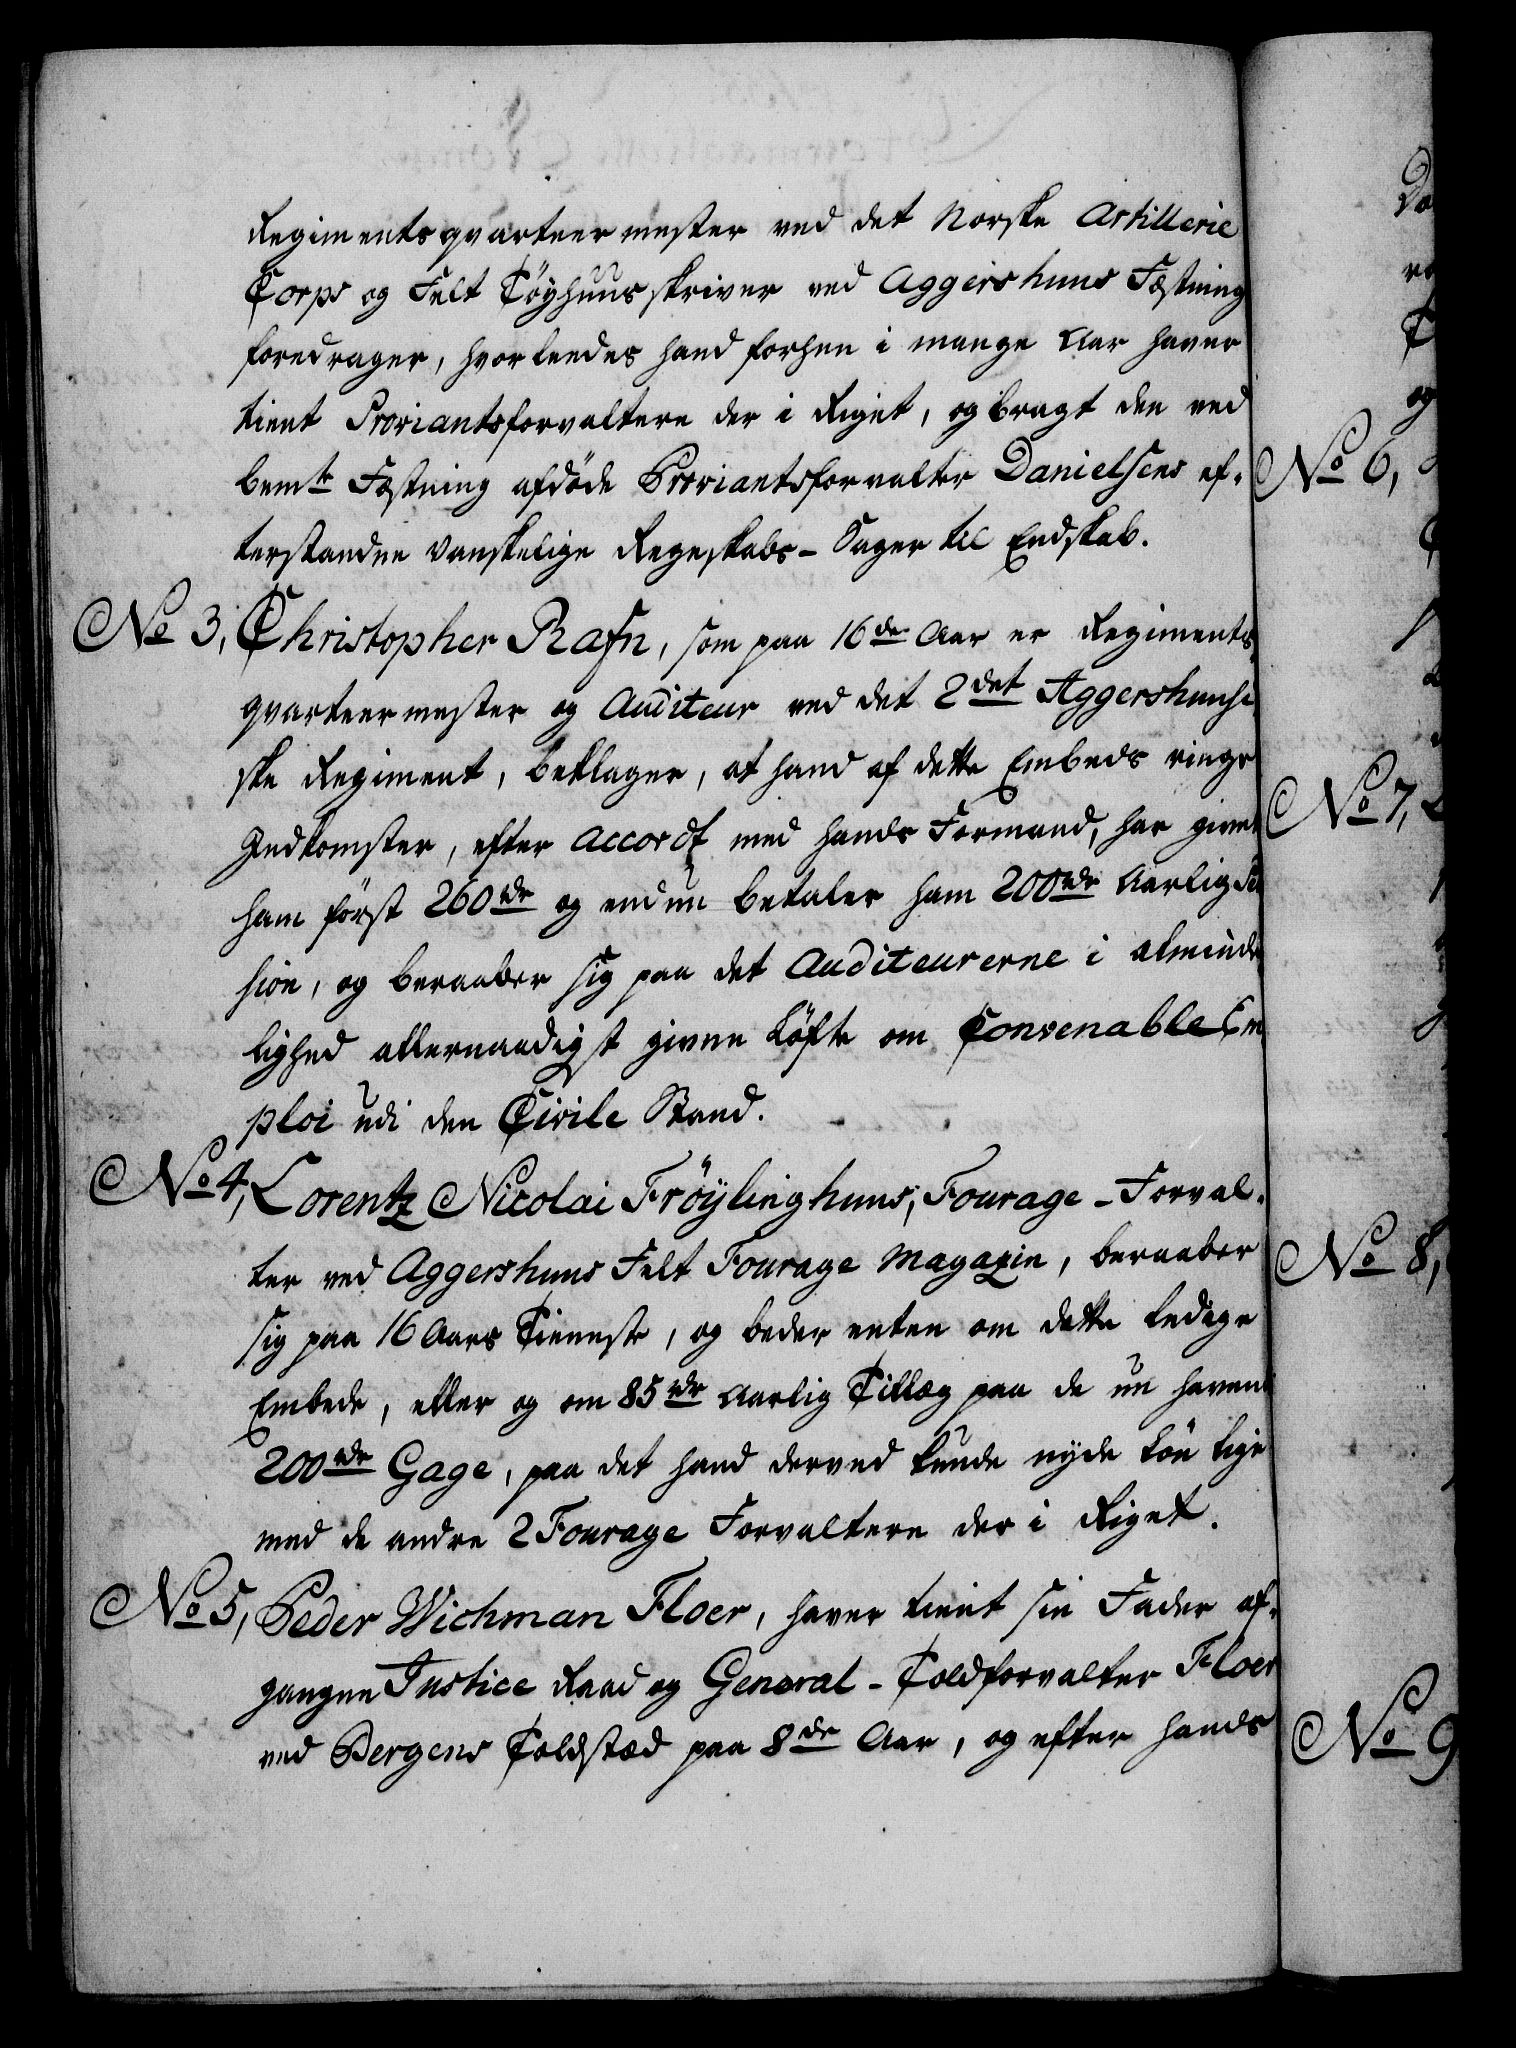 Regimentsqvarteermester ved det Norske Artillerie
Corps og Felt Töyhuusskriver ved Aggershuus Fæstning
foredrager, hvorleedes hand forhen i mange Aar haver
tient Proviantsforvaltere der i Riget, og bragt den ved
bemte Fæstning afdöde Proviantsforvalter Danielsens ef-
terstandne vanskelige Regnskabs-Sager til Endskab.
No 3, Christopher Rafn, som paa 16de Aar er Regiments-
qvarteermester og Auditeur ved det 2det Aggershuusi
ske Regiment, beklager, at hand af dette Embeds ringe
Indkomster, efter Accordt med hands Formand, har givet
ham först 260rdr og endnu betaler ham 200rdr Aarlig
sion, og beraaber sig paa det Auditeurerne i alminde
lighed allernaadigst givne Löfte om Convenable Em
ploi udi den Civile Stand.
No 4, Lorentz Nicolai Fröylinghuus, Fourage-Forval-
ter ved Aggershuus Felt Fourage Magazin, beraaber
sig paa 16 Aars Tienneste, og beder enten om dette ledige
Embede, eller og om 85rdr Aarlig Tillæg paa de nu havende
200rdr Gage, paa det hand derved kunde nyde Lön lige
med de andre 2 Fourage Forvaltere der i Riget.
No 5, Peder Wichman Floer, haver tient sin Fader af-
gangne Justice Raad og General-Toldforvalter Floer
ved Bergens Toldsted paa 8de Aar, og efter hands
No 6,
No 7,
No 8,
No 9